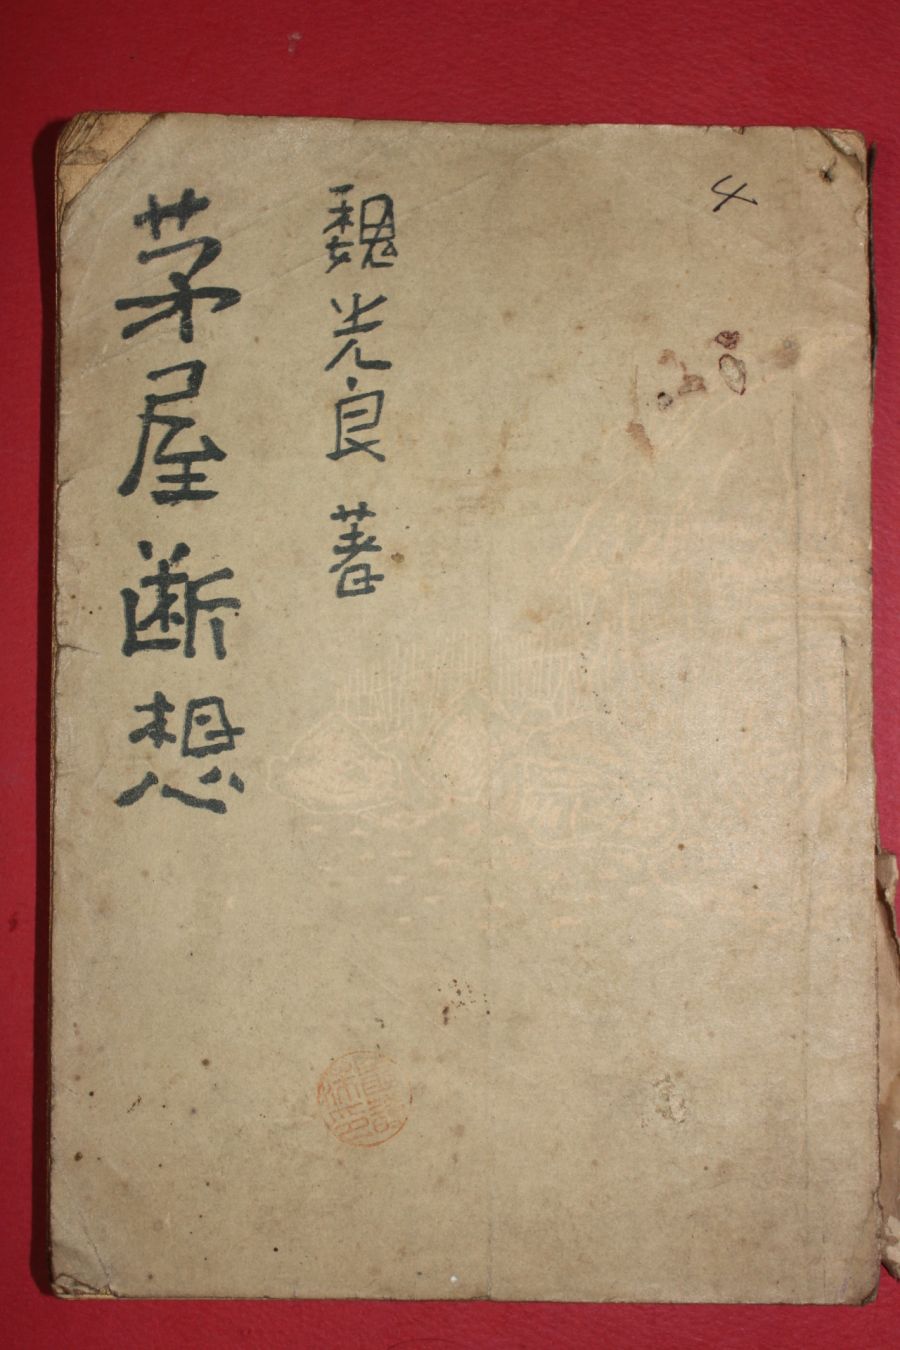 4
魏光良 著
茅屋断想